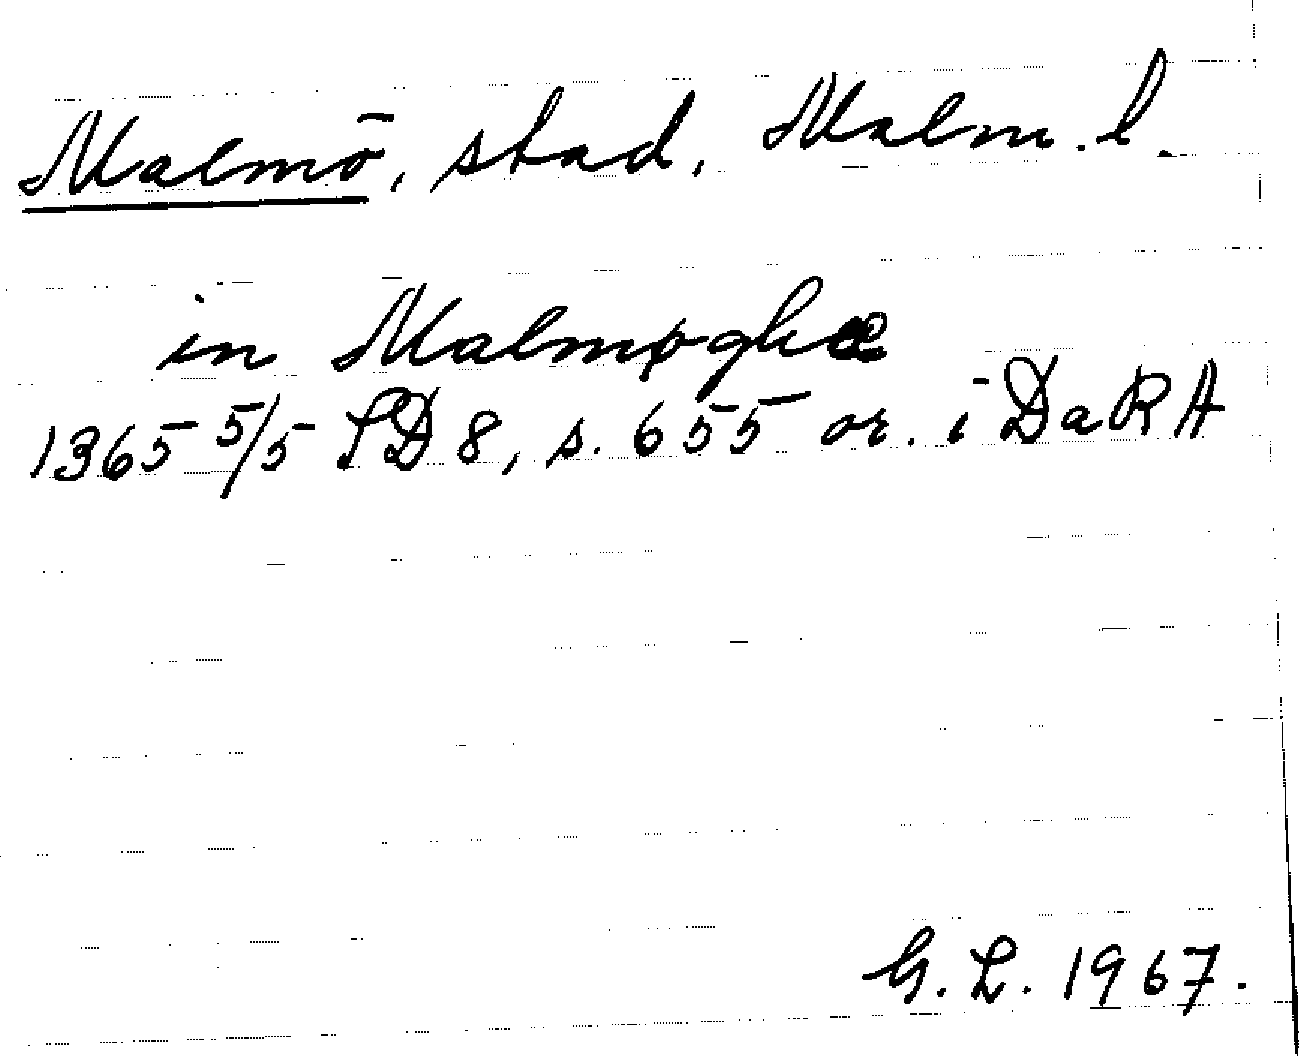 Malmö, stad, Malm. l.
in Malmøghæ
1365 5/5 SD 8, s. 655 or. i DaRA
G. L. 1967.